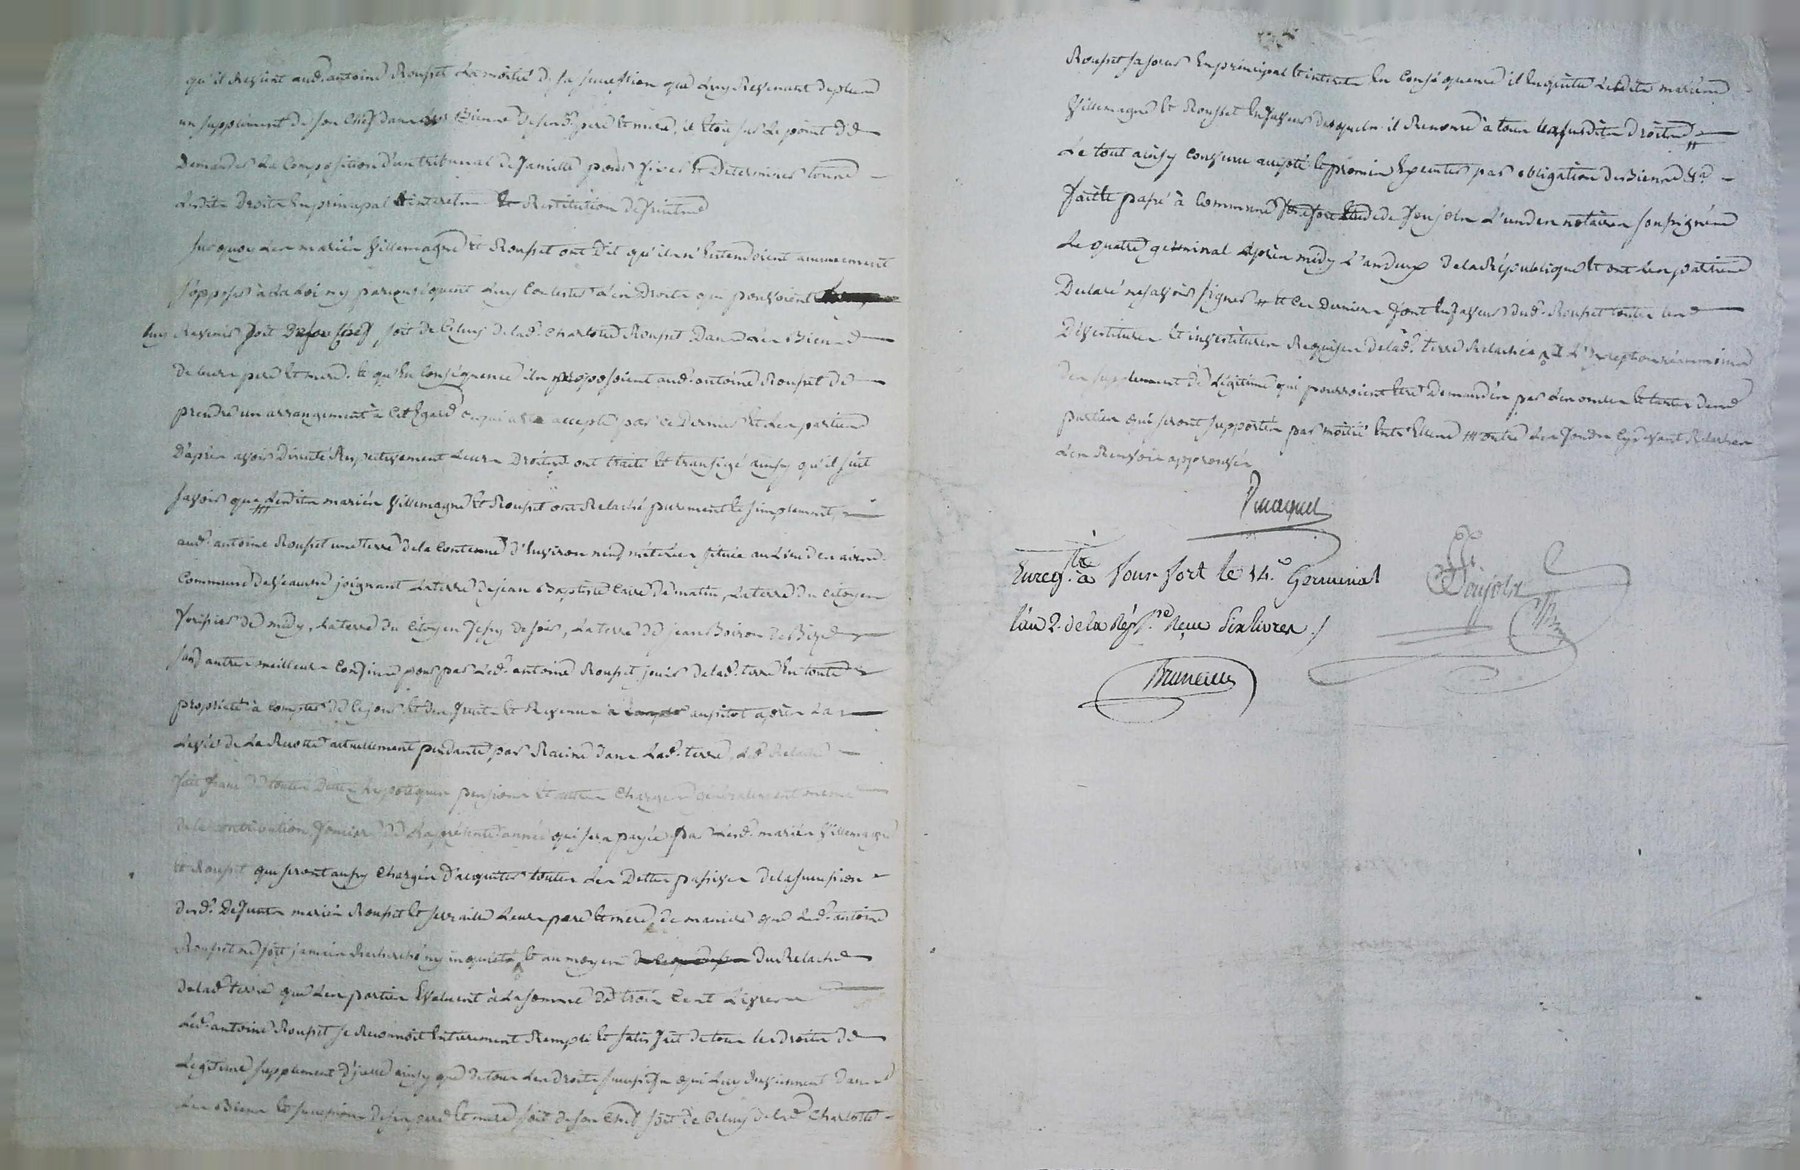 qu'il Revient aud. antoine Rouset La moitié de sa succession que Luy Revenant deplus
un supplement de son Chef dans les Biens de sesd. pere et mere, il etoit sur Le point de
demander La Composition d'un tribunal de famille pour fixer et determiner tous
Lesdits droits En principal et interets et Restitution de fruits
sur quoy Les mariés Villemagne et Rouset ont dit qu'ils n'Entendoient aucunement
s'opposer à La Loi ny par conséquent Luy Contester Les droits qui pouvoient
Luy Revenir soit de son Chef, soit de Celuy de lad. Charlotte Rouset dans Les Biens
de Leurs pere et mere. et qu'En Conséquence ils proposoient aud. antoine Rouset de
prendre un arrangement à Cet Egard ce qui a été accepté par ce dernier et Les parties
d'après avoir discuté Respectivement Leurs droits ont traité et transigé ainsy qu'il suit
savoir que Lesdits mariés Villemagne et Rouset ont Relaché purement et simplement
aud. antoine Rouset une terre de la Contenue d'Environ neuf méterées située au Lieu des
Commune de joignant La terre de jean Baptiste de matin, La terre du Citoyen
de midy, La terre du Citoyen de soir, La terre de jean Boiron de Bize
sauf autres meilleurs Confins pour par Led. antoine Rouset jouir de lad. terre En toute
proprieté à Compter de Ce jour et des fruits et Revenus aussitot après La
Levée de La Recolte actuellement pendante par Racine dans Lad. terre, Led. Relaché
fait franc de toutes Dettes hypoteques pensions et autres Charges generalement meme
de la Contribution fonciere de La présente année qui sera payée par Lesd. mariés Villemagne
et Rouset qui seront aussy Chargés d'acquitter toutes Les Dettes passives de la succession
desd. Defunts mariés Rouset et Leurs pere et mere, de maniere que Led. antoine
Rouset ne soit jamais Recherché ny inquieté, et au moyen du Relaché
de lad. terre que Les parties Evaluent à La somme de trois Cent Livres
Led. antoine Rouset se Reconnoit Entierement Rempli et satisfait de tous les droits de
Legitime supplement d'icelle ainsy que de tous Les droits successifs qui Luy Reviennent dans
Les Biens et successions de ses pere et mere soit de son Chef soit de Celuy de lad. Charlotte
Rouset sa sœur En principal et interets En Conséquence il En quitte Lesdits mariés
Villemagne et Rouset En faveur desquels il Renonce à tous Les susdits droits
Le tout ainsy Convenu accepté et promis Executer par obligation des Biens &a
fait et passé à Commune Etude de joujoly L'un des notaires soussignés
Le quatre germinal après midy L'an deux de la République et ont Les parties
Declaré ne savoir signer et Ces derniers font En faveur dud. Rouset toutes Les
Devestitures et investitures Requises de lad. terre Relachée à L'Exception néanmoins
des supplements de Légitime qui pourroient être demandés par Les oncles et tantes desd.
parties qui seront supportés par moitié Entr'Elles outre Les fonds Cydevant Relachés
Les Renvois approuvés
Enreg.tré à Tour fort le 14.e Germinal
l'an 2. de la Rép.que Reçu Six livres